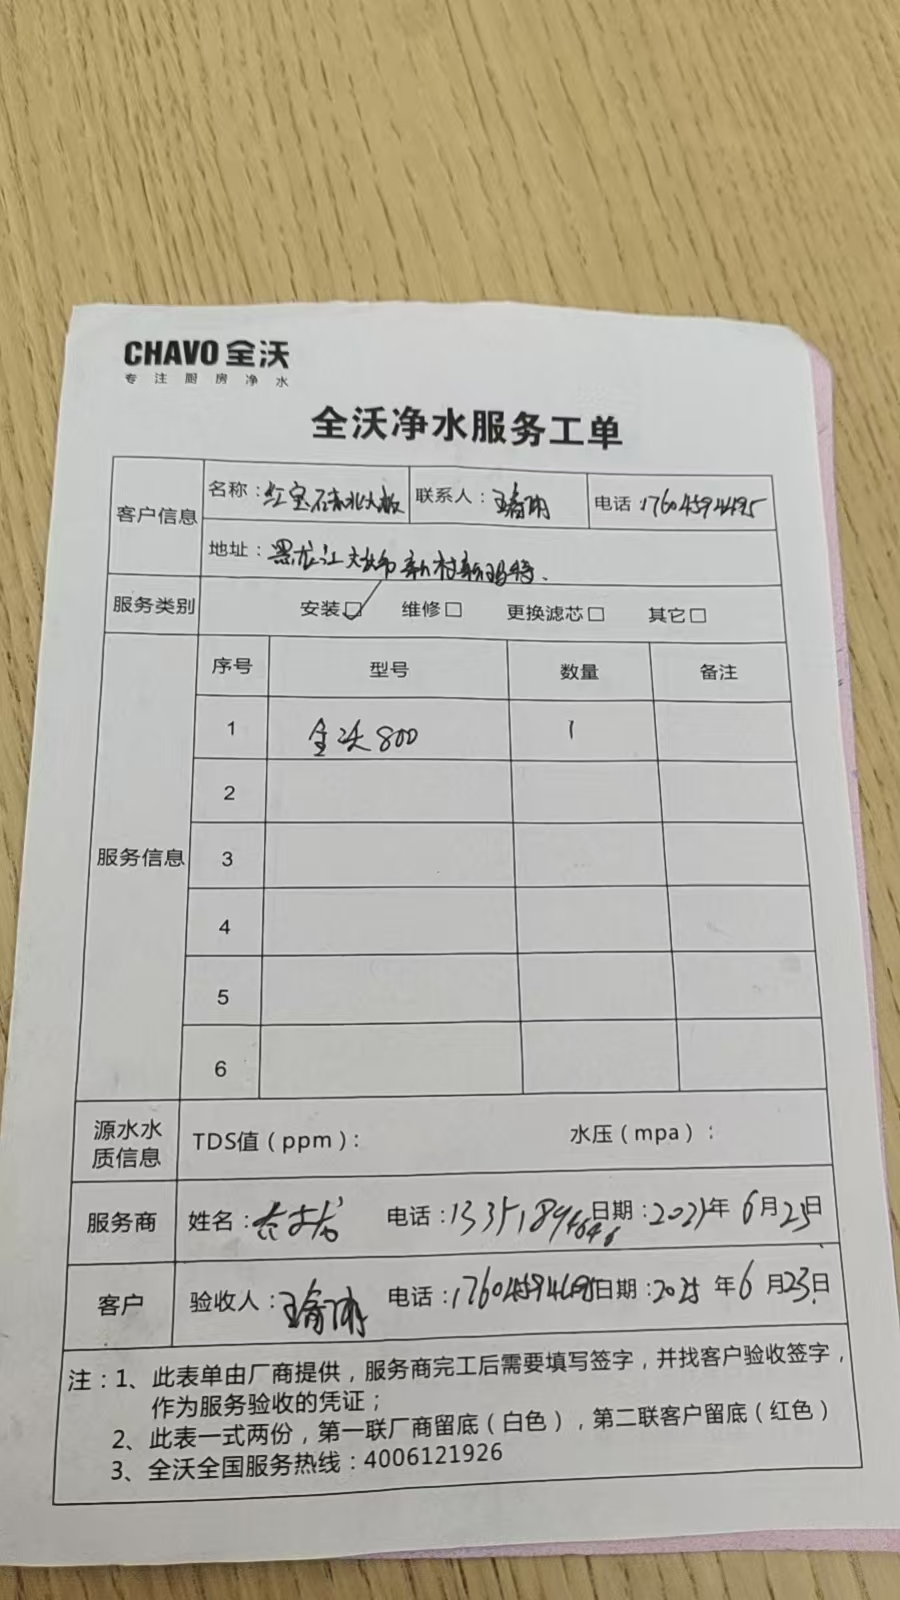 CHAVO 全沃
专注厨房净水
全沃净水服务工单
客户信息 名称：红宝石 联系人：王 电话：17604594495
地址：黑龙江 大庆市 新村新玛特.
服务类别 安装☑ 维修□ 更换滤芯□ 其它□
服务信息 序号 型号 数量 备注
1 全沃800 1
2
3
4
5
6
源水水质信息 TDS值（ppm）： 水压（mpa）：
服务商 姓名： 电话：13351894646 日期：2025年6月23日
客户 验收人：王 电话： 日期：2025年6月23日
注：1、此表单由厂商提供，服务商完工后需要填写签字，并找客户验收签字，
作为服务验收的凭证；
2、此表一式两份，第一联厂商留底（白色），第二联客户留底（红色）
3、全沃全国服务热线：4006121926